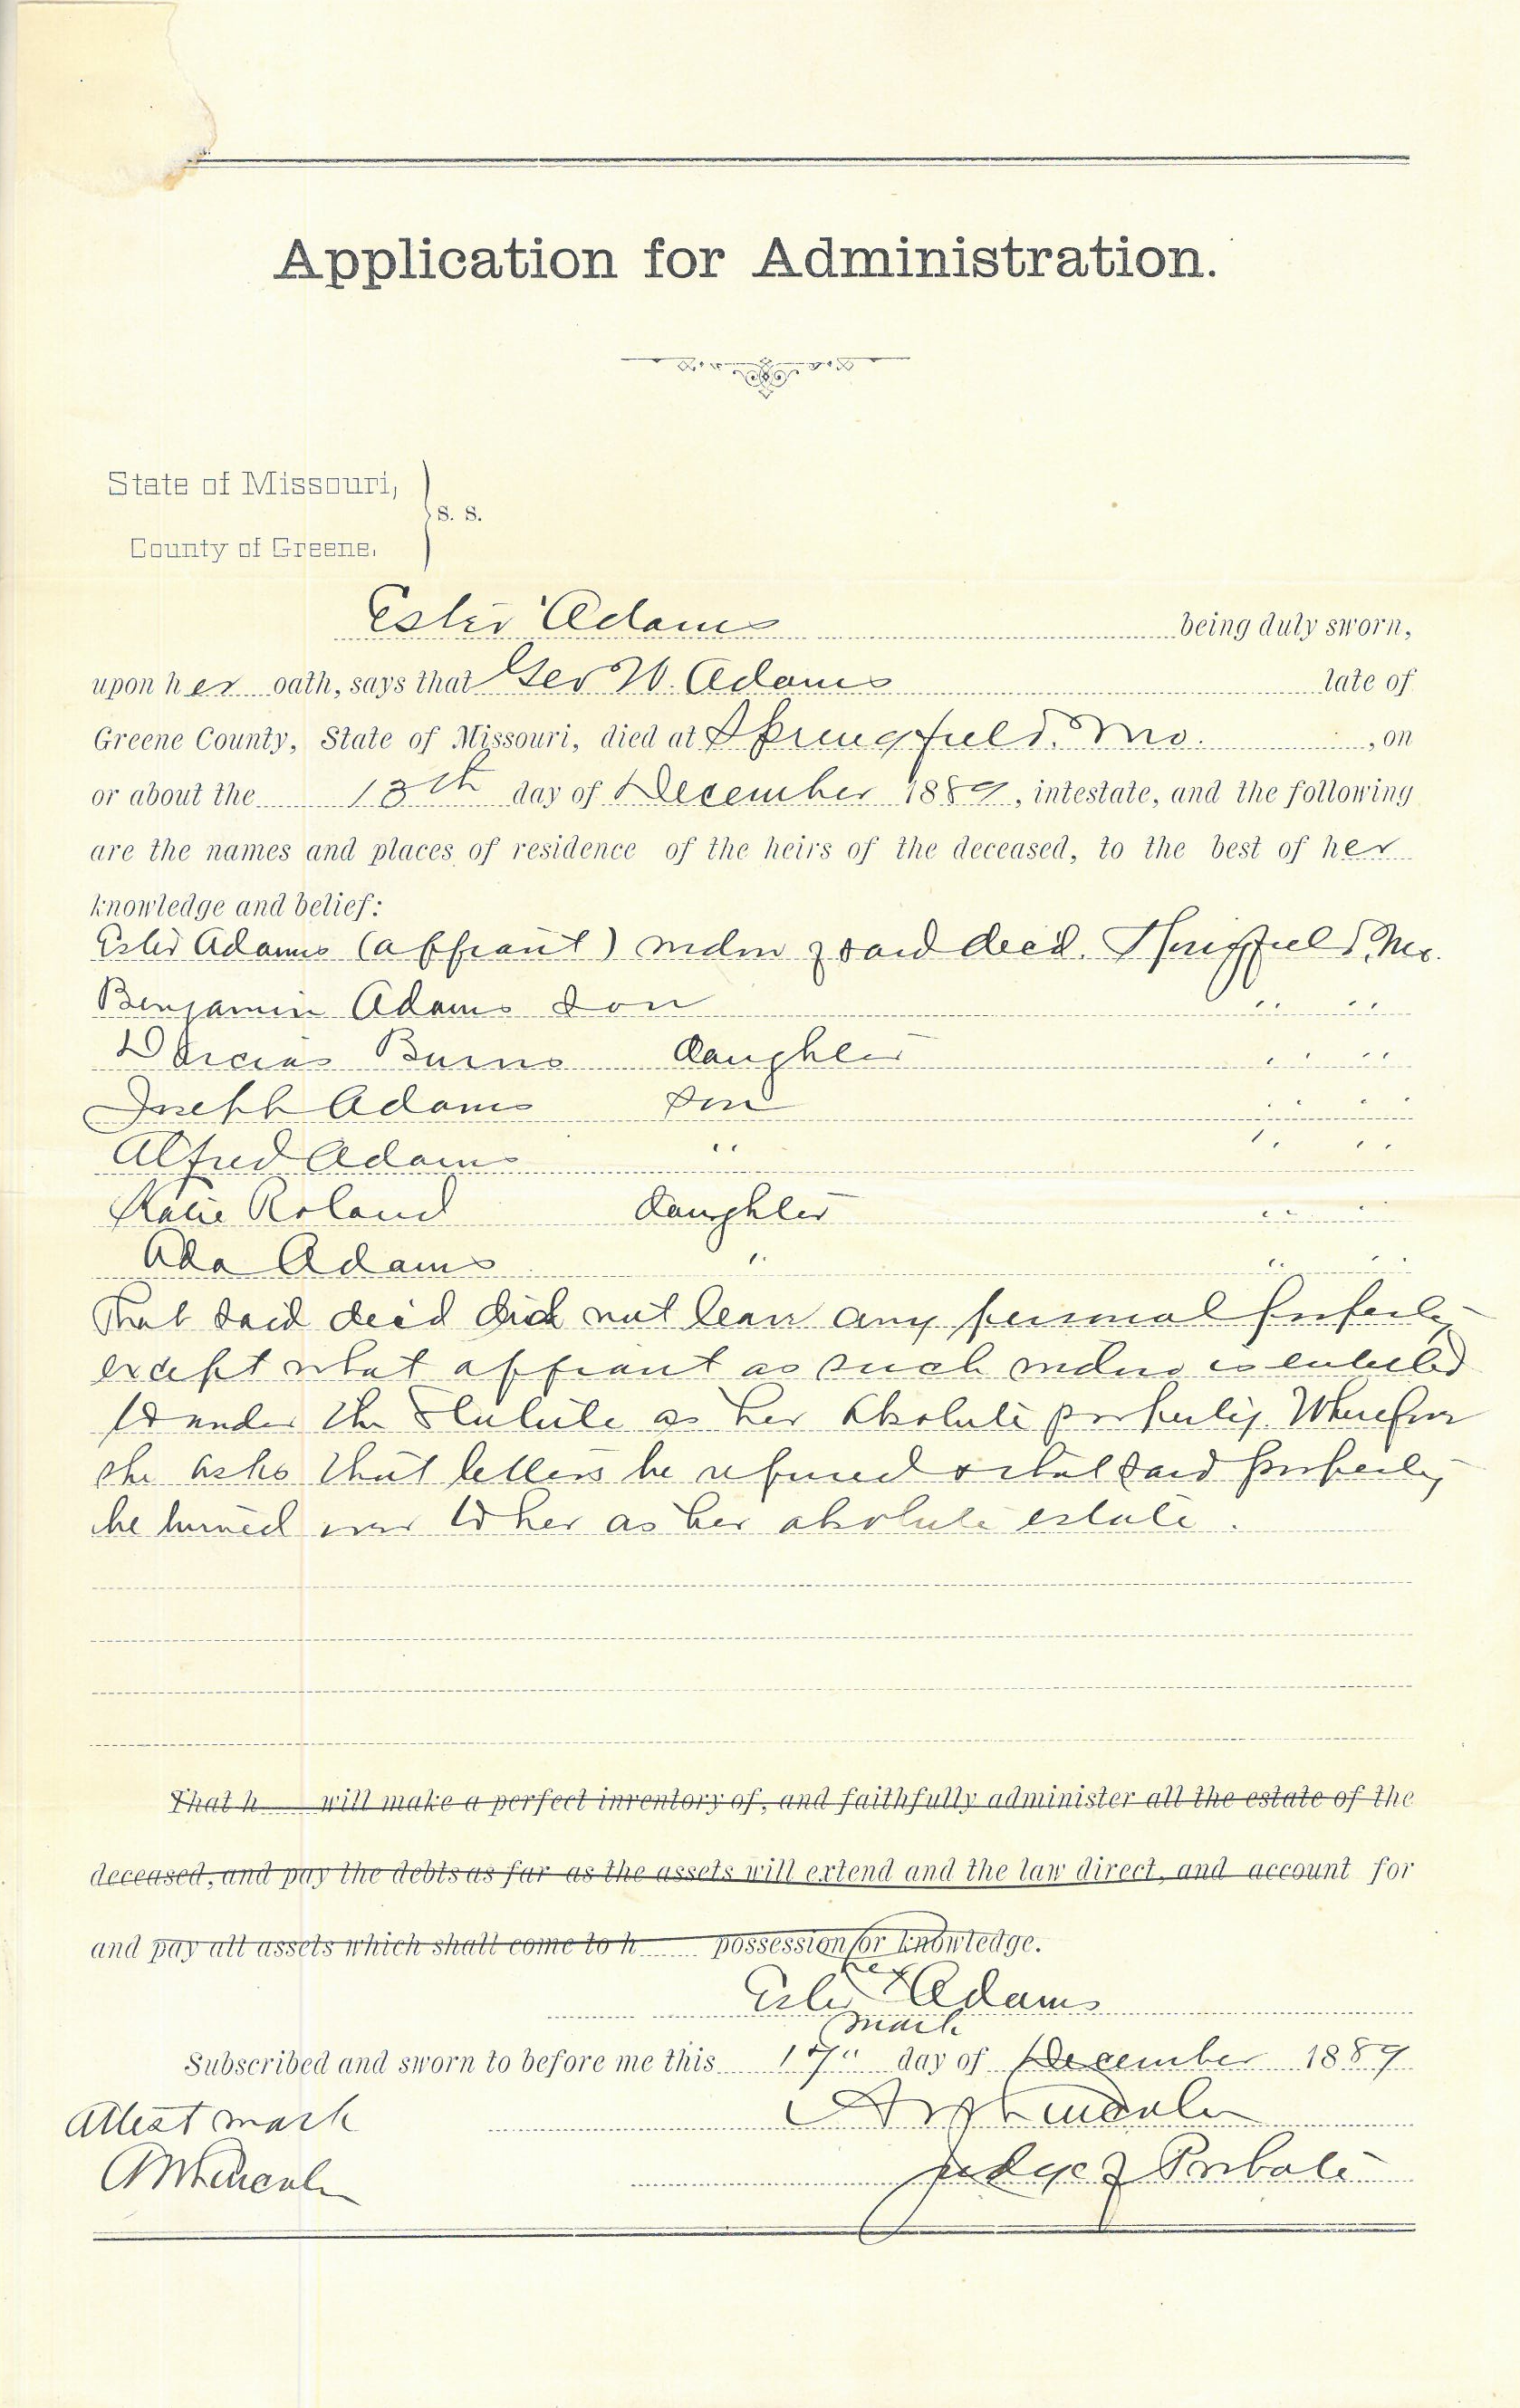 Application for Administration.
State of Missouri,
S. S.
County of Greene,
Ester Adams being duly sworn,
upon her oath, says that Geo W. Adams late of
Greene County, State of Missouri, died at Springfield, Mo. , on
or about the 13th day of December 1889, intestate, and the following
are the names and places of residence of the heirs of the deceased, to the best of her
knowledge and belief:
Ester Adams (affiant) widow of said decd. Springfield, Mo.
Benjamin Adams Son " "
Dorcias Burns daughter " "
Joseph Adams Son " "
Alfred Adams " " "
Katie Roland daughter " "
Ada Adams " " "
That said decd did not leave any personal property
except what affiant as such widow is entitled
to under the Statute as her absolute property. Wherefore
she asks that letters be refused & that said property
be turned over to her as her absolute estate.
That h will make a perfect inventory of, and faithfully administer all the estate of the
deceased, and pay the debts as far as the assets will extend and the law direct, and account for
and pay all assets which shall come to h possession or knowledge.
her
Ester x Adams
mark
Subscribed and sworn to before me this 17" day of December 1889
Attest mark
Judge of Probate